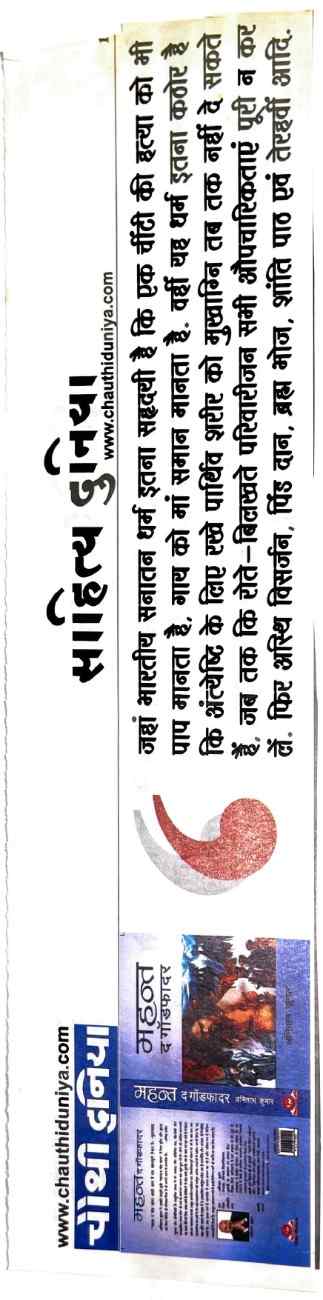 www.chauthiduniya.com
चौथी दुनिया
साहित्य दुनिया
www.chauthiduniya.com
1
महन्त
द गॉडफादर
अभिलाष कुमार
महन्त द गॉडफादर
अभिलाष कुमार
महन्त द गॉडफादर
जहां भारतीय सनातन धर्म इतना सहृदयी है कि एक चींटी की हत्या को भी
पाप मानता है, गाय को मां समान मानता है. वहीं यह धर्म इतना कठोर है
कि अंत्येष्टि के लिए रखे पार्थिव शरीर को मुखाग्नि तब तक नहीं दे सकते
हैं, जब तक कि रोते-बिलखते परिवारीजन सभी औपचारिकताएं पूरी न कर
लें. फिर अस्थि विसर्जन, पिंड दान, ब्रह्म भोज, शांति पाठ एवं तेरहवीं आदि.